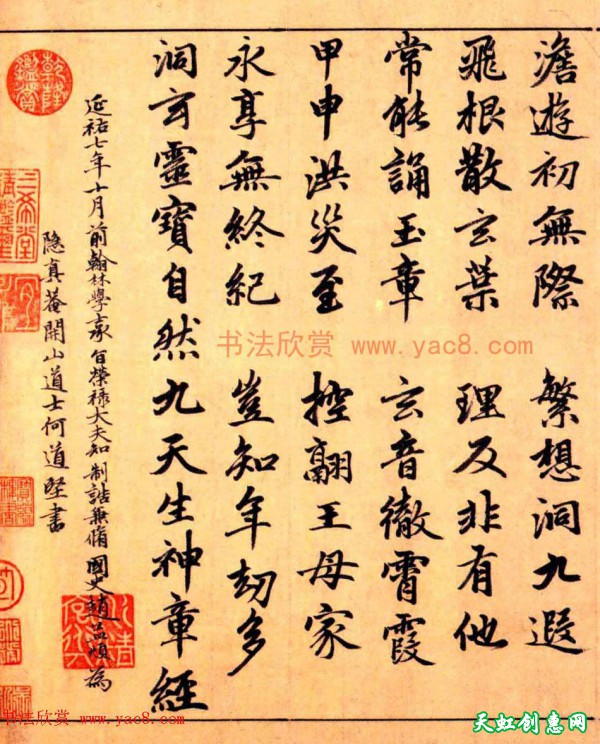 澹遊初無際 繁想洞九遐
飛根散玄葉 理反非有他
常能誦玉章 玄音徹霄霞
甲申洪災至 控翮王母家
永享無終紀 豈知年劫多
洞玄靈寶自然九天生神章經
延祐七年十月前翰林學士承旨榮祿大夫知制誥兼脩國史趙孟頫為
隱真菴開山道士何道堅書
乾隆鑑賞
三希堂
书法欣赏 www.yac8.com
书法欣赏 www.yac8.com
天虹创惠网